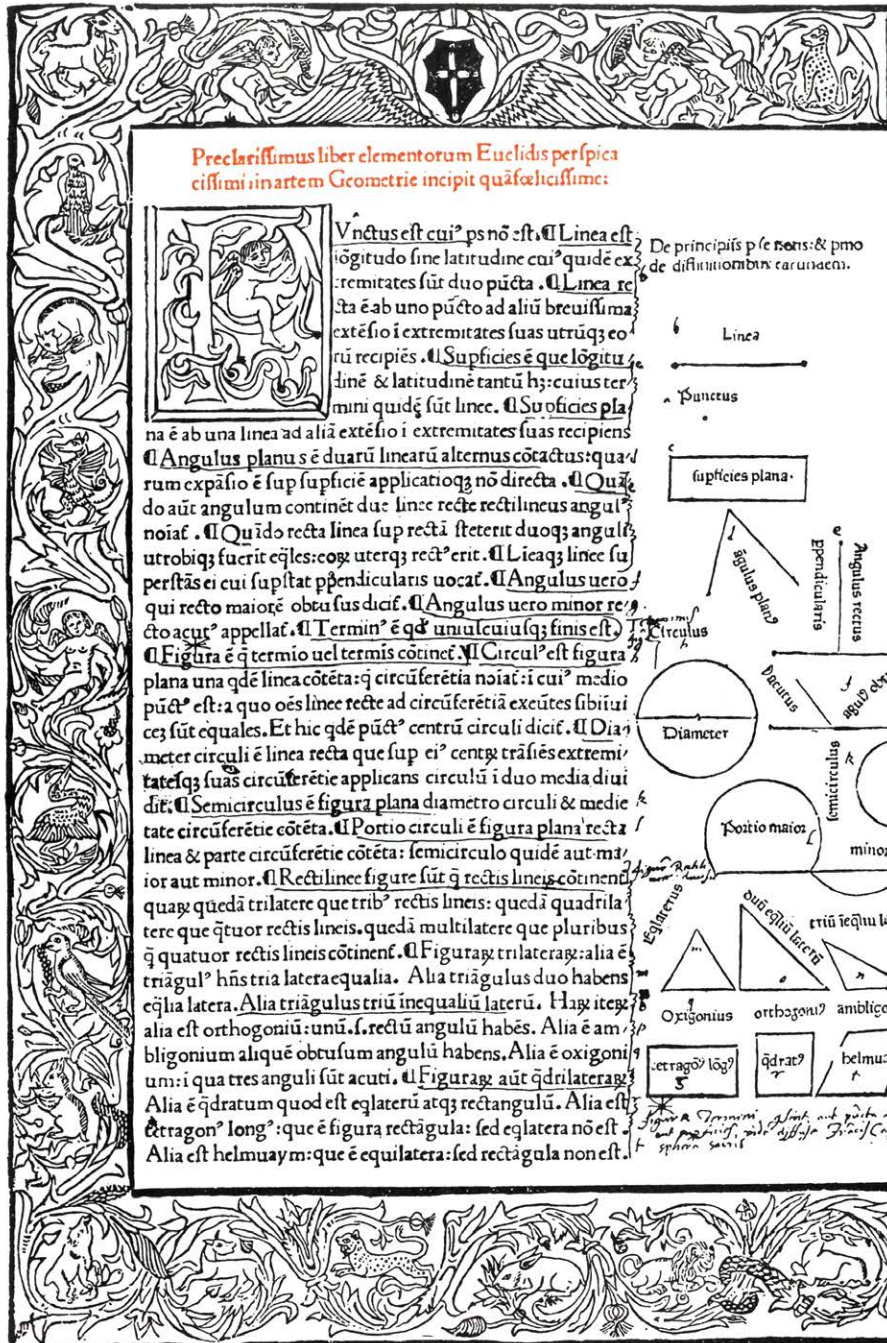 Preclarissimus liber elementorum Euclidis perspica
cissimi: in artem Geometrie incipit quāfœlicissime:
Vnctus est cuiꝰ ps nō est. ¶ Linea est
lōgitudo sine latitudine cuiꝰ quidē ex
tremitates sūt duo pūcta . ¶ Linea re
cta ē ab uno pūcto ad aliū breuissima
extēsio ī extremitates suas utrūqꝫ eo
rū recipiēs . ¶ Supficies ē que lōgitu
dinē & latitudinē tantū hꝫ: cuius ter
mini quidē sūt linee. ¶ Supficies pla
na ē ab una linea ad aliā extēsio i extremitates suas recipiens
¶ Angulus planus ē duarū linearū alternus cōtactus: qua
rum expāsio ē sup supficiē applicatioqꝫ nō directa . ¶ Quā
do aūt angulum continēt due linee recte rectilineus angulꝰ
noīat. ¶ Quādo recta linea sup rectā steterit duoqꝫ anguli
utrobiqꝫ fuerīt eq̄les: eoꝝ uterqꝫ rectꝰ erit. ¶ Lineaqꝫ linee su
perstās ei cui supstat ppendicularis uocat. ¶ Angulus uero
qui recto maior ē obtusus dicit. ¶ Angulus uero minor re
cto acutꝰ appellat. ¶ Terminꝰ ē qd uniuscuiusqꝫ finis est.
¶ Figura ē q̄ termio uel termis cōtinet. ¶ Circulꝰ est figura
plana una qdē linea cōtēta: q̄ circūferētia noīat: i cuiꝰ medio
pūctꝰ est: a quo oēs linee recte ad circūferētiā exeūtes sibiīui
ceꝫ sūt equales. Et hic qdē pūctꝰ centrū circuli dicit. ¶ Dia
meter circuli ē linea recta que sup eiꝰ centꝝ trāsiēs extremi
tatesqꝫ suas circūferētie applicans circulū i duo media diui
dit. ¶ Semicirculus ē figura plana diametro circuli & medie
tate circūferētie cōtēta. ¶ Portio circuli ē figura plana recta
linea & parte circūferētie cōtēta: semicirculo quidē aut ma
ior aut minor. ¶ Rectilinee figure sūt q̄ rectis lineis cōtinent
quaꝝ quedā trilatere que tribꝰ rectis lineis: quedā quadrila
tere que q̄tuor rectis lineis. quedā multilatere que pluribus
q̄ quatuor rectis lineis cōtinent. ¶ Figuraꝝ trilateraꝝ: alia ē
triāgulꝰ hñs tria latera equalia. Alia triāgulus duo habens
eq̄lia latera. Alia triāgulus triū inequaliū laterū. Haꝝ iteꝝ
alia est orthogoniū: unū .s. rectū angulū habēs. Alia ē am
bligonium aliquē obtusum angulū habens. Alia ē oxigoni
um: i qua tres anguli sūt acuti. ¶ Figuraꝝ aūt q̄drilateraꝝ
Alia ē q̄dratum quod est eqlaterū atqꝫ rectangulū. Alia est
tetragonꝰ longꝰ: que ē figura rectāgula: sed eqlatera nō est.
Alia est helmuaym: que ē equilatera: sed rectāgula non est.
De principiis p se notis: & pmo
de diffinitionibus earundem.
Linea
Punctus
supficies plana.
āgulus planꝰ
ppendicularis
Angulus rectus
Circulus
Diameter
Dacutus
semicirculus
Portio maior
minor
Eqlaterus
duū eqliū laterū
triū ieqliū la
Oxigonius
orthogoniꝰ
ambligo
tetragōꝰ lōgꝰ
q̄dratꝰ
helmua